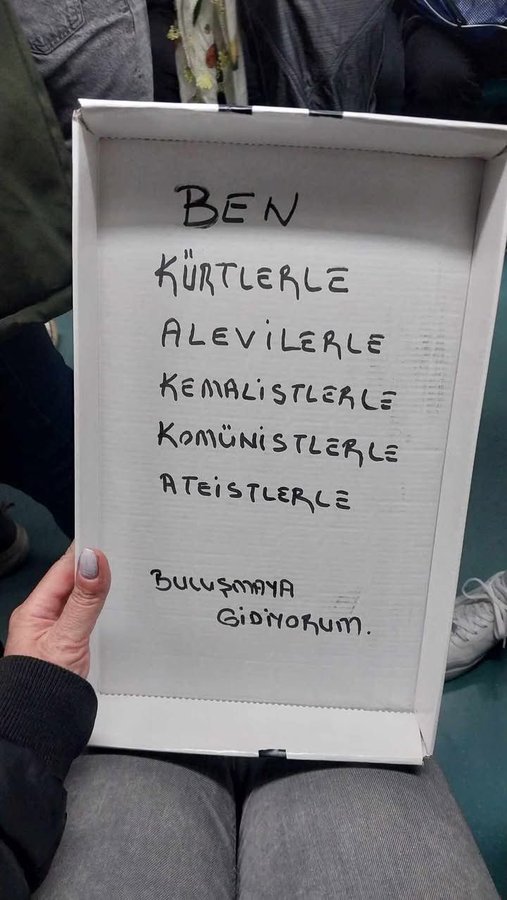 BEN
KÜRTLERLE
ALEVİLERLE
KEMALİSTLERLE
KOMÜNİSTLERLE
ATEİSTLERLE
BULUŞMAYA
GİDİYORUM.